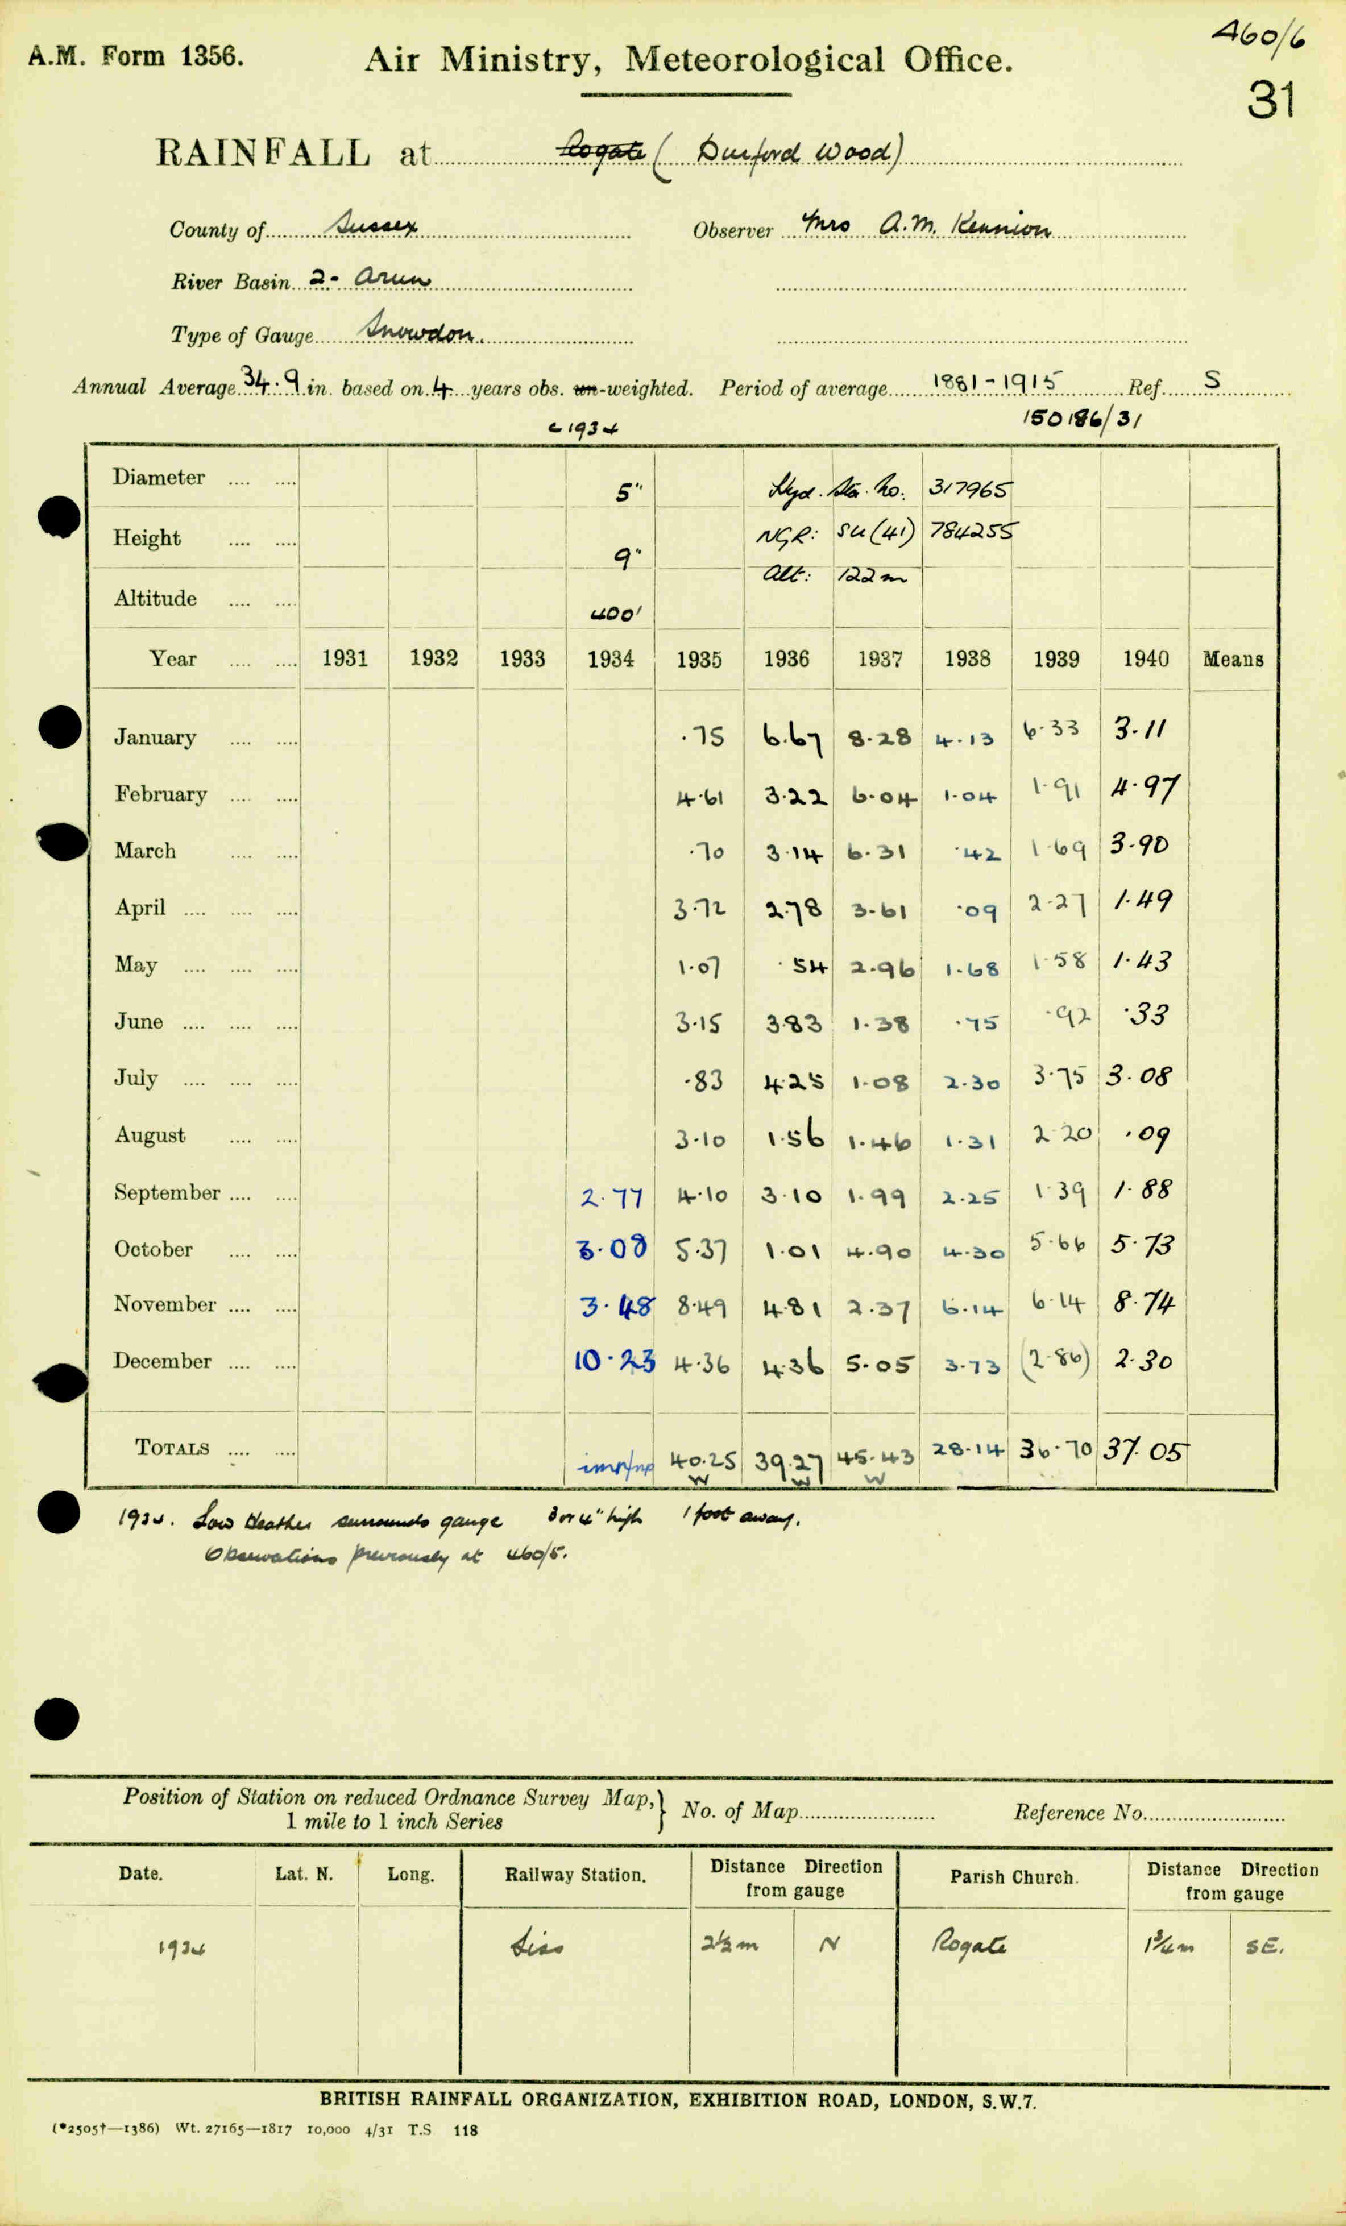 460/6
A.M. Form 1356. Air Ministry, Meteorological Office.
31
RAINFALL at Rogate ( Durford Wood)
County of Sussex Observer Mrs A.M. Kennion
River Basin 2- Arun
Type of Gauge Snowdon.
Annual Average 34.9 in. based on 4 years obs. un-weighted. Period of average 1881-1915 Ref. S
c 1934 150186/31
Diameter .... .... 5" Hyd. Sta. No: 317965
Height .... .... 9" NGR: SU (41) 784255
Altitude .... .... 400' Alt: 122m
Year .... .... 1931 1932 1933 1934 1935 1936 1937 1938 1939 1940 Means
January .... .... .75 6.67 8.28 4.13 6.33 3.11
February .... .... 4.61 3.22 6.04 1.04 1.91 4.97
March .... .... .70 3.14 6.31 .42 1.69 3.90
April .... .... .... 3.72 2.78 3.61 .09 2.27 1.49
May .... .... .... 1.07 .54 2.96 1.68 1.58 1.43
June .... .... .... 3.15 3.83 1.38 .75 .92 .33
July .... .... .... .83 4.25 1.08 2.30 3.75 3.08
August .... .... 3.10 1.56 1.46 1.31 2.20 .09
September .... .... 2.77 4.10 3.10 1.99 2.25 1.39 1.88
October .... .... 3.08 5.37 1.01 4.90 4.30 5.66 5.73
November .... .... 3.48 8.49 4.81 2.37 6.14 6.14 8.74
December .... .... 10.23 4.36 4.36 5.05 3.73 (2.86) 2.30
TOTALS .... .... 40.25 39.27 45.43 28.14 36.70 37.05
W W W
1934. Low Heather surrounds gauge 3 or 4" high 1 foot away.
Observations previously at 460/5.
Position of Station on reduced Ordnance Survey Map, } No. of Map Reference No.
1 mile to 1 inch Series
Date. Lat. N. Long. Railway Station. Distance Direction from gauge Parish Church. Distance Direction from gauge
1934 Liss 2½m N Rogate 1¾m SE.
BRITISH RAINFALL ORGANIZATION, EXHIBITION ROAD, LONDON, S.W.7.
(*2505†—1386) Wt. 27165—1817 10,000 4/31 T.S 118